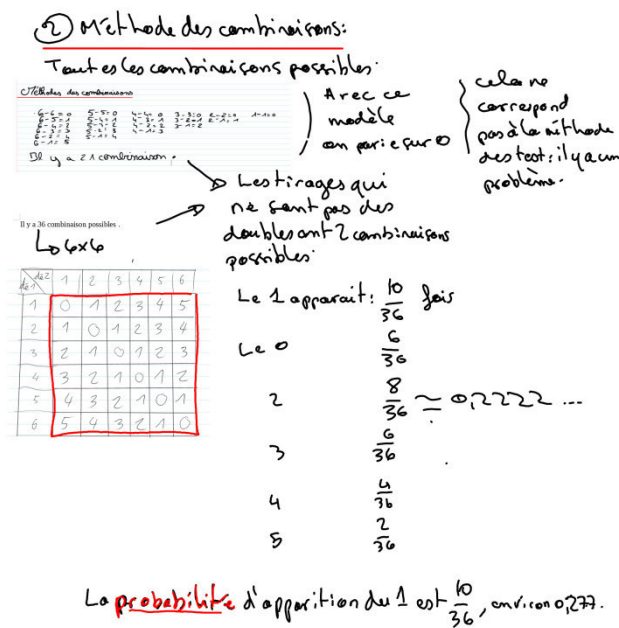 ② Méthode des combinaisons:
Toutes les combinaisons possibles.
Méthodes des combinaisons
6-6=0 5-5=0 4-4=0 3-3=0 2-2=0 1-1=0
6-5=1 5-4=1 4-3=1 3-2=1 2-1=1
6-4=2 5-3=2 4-2=2 3-1=2
6-3=3 5-2=3 4-1=3
6-2=4 5-1=4
6-1=5
Il y a 21 combinaison.
Avec ce
modèle
on parie sur 0
cela ne
correspond
pas à la méthode
des test: il y a un
problème.
Les tirages qui
ne sont pas des
doubles ont 2 combinaisons
possibles.
Il y a 36 combinaison possibles .
6x6
dé 2 1 2 3 4 5 6
dé 1
1 0 1 2 3 4 5
2 1 0 1 2 3 4
3 2 1 0 1 2 3
4 3 2 1 0 1 2
5 4 3 2 1 0 1
6 5 4 3 2 1 0
Le 1 apparait: 10/36 fois
Le 0 6/36
2 8/36 ≃ 0,2222 ...
3 6/36
4 4/36
5 2/36
La probabilité d'apparition du 1 est 10/36, environ 0,277.